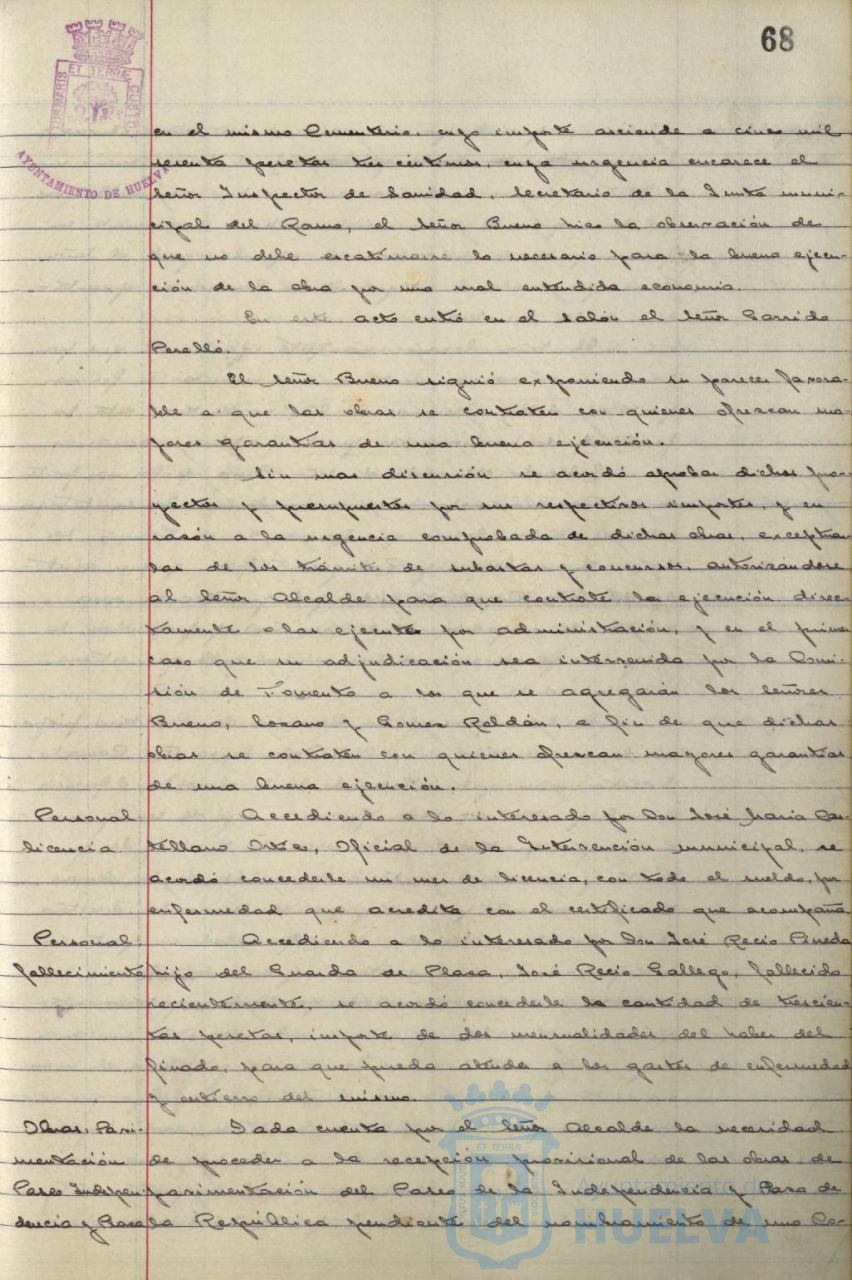 68
PORTUS MARIS
ET TERRÆ
CUSTODIA
AYUNTAMIENTO DE HUELVA
en el mismo Cementerio, cuyo importe asciende a cinco mil
sesenta pesetas tres céntimos, cuya urgencia encarece el
Señor Inspector de Sanidad, Secretario de la Junta muni-
cipal del Ramo, el Señor Bueno hizo la observación de
que no debe escatimarse lo necesario para la buena ejecu-
ción de la obra por una mal entendida economia.
En este acto entró en el salón el Señor Garrido
Perelló.
El Señor Bueno siguió exponiendo su parecer favora-
ble a que las obras se contraten con quienes ofrezcan ma-
yores garantias de una buena ejecución.
Sin mas discusión se acordó aprobar dichos pro-
yectos y presupuestos por sus respectivos importes, y en
razón a la urgencia comprobada de dichas obras, exceptuar-
las de los trámites de subastas y concursos, autorizándose
al Señor Alcalde para que contrate la ejecución direc-
tamente o las ejecute por administración, y en el primer
caso que su adjudicación sea intervenida por la Comi-
sión de Fomento a los que se agregarán los Señores
Bueno, Lozano y Gomez Roldán, a fin de que dichas
obras se contraten con quienes ofrezcan mayores garantias
de una buena ejecución.
Personal
licencia
Accediendo a lo interesado por Don José Maria Cas-
tellano Ortiz, Oficial de la Intervención municipal, se
acordó concederle un mes de licencia, con todo el sueldo, por
enfermedad que acredita con el certificado que acompaña.
Personal.
fallecimiento
Accediendo a lo interesado por Don José Recio Pineda
hijo del Guarda de Plaza, José Recio Gallego, fallecido
recientemente, se acordó concederle la cantidad de trescien-
tas pesetas, importe de dos mensualidades del haber del
finado, para que pueda atender a los gastos de enfermedad
y entierro del mismo.
Obras, Pavi-
mentación
Paseo Indepen-
dencia y Plaza
Dada cuenta por el Señor Alcalde la necesidad
de proceder a la recepción provisional de las obras de
pavimentación del Paseo de la Independencia y Plaza de
la República pendiente del nombramiento de una Co-
Ayuntamiento de
HUELVA